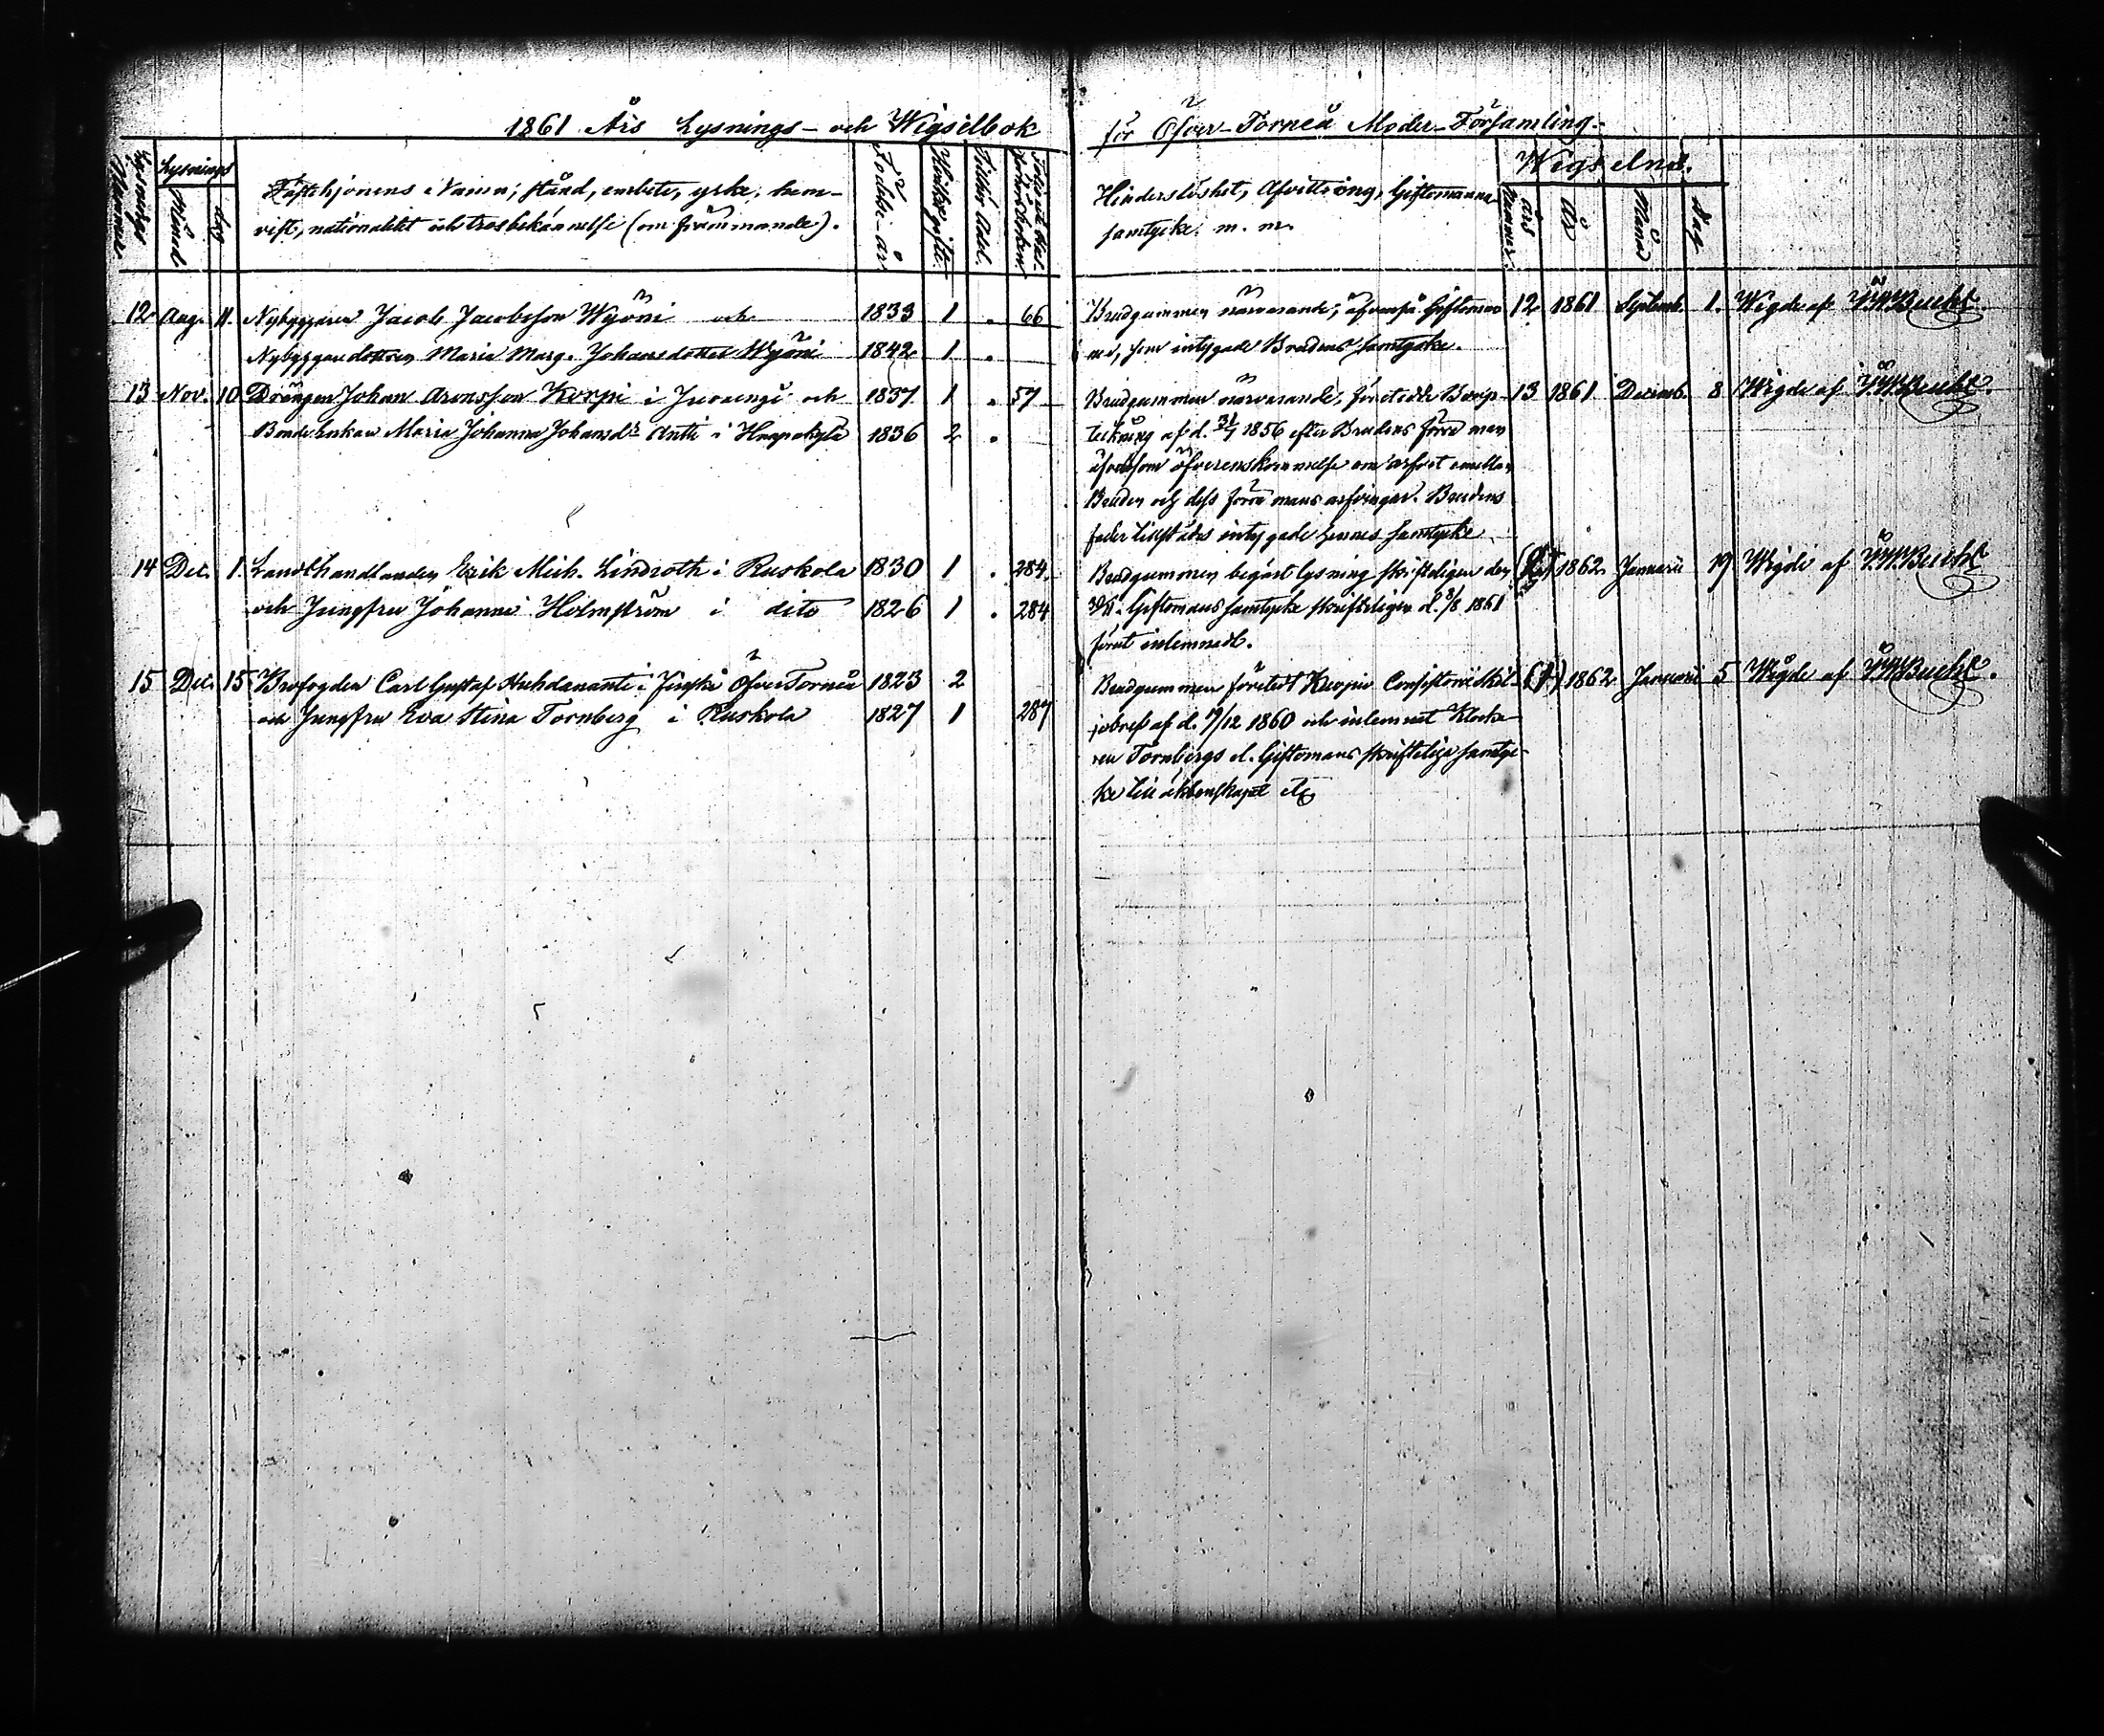 1861 Års Lysnings- och Wigselbok
för Öfver-Torneå Moder-Församling.
Lysnings Nummer
Lysnings
Månad
dag
Fästehjonens Namn, stånd, embete, yrke, hem-
vist, nationalitet och trosbekännelse (om främmande).
Födelse-år
Hvilket gifte.
Hinderslöshet, Afvittring, Giftomanna-
samtycke m. m.
Wigselns.
års Nummer.
År
Månad
dag.
12 Aug. 11. Nybyggaren Jacob Jacobsson Wyöni och 1833 1 . 66
Nybyggaredottren Maria Marg. Johansdotter Wyöni 1842 1 .
Brudgummen närvarande; äfvenså Giftoman
nen, som intygade Brudens samtycke.
12 1861 Septemb. 1. Wigde af
13 Nov. 10 Drängen Johan Aronsson Korpi i Juoxengi och 1837 1 . 57
Bonde Enkan Maria Johanna Johansdr Anti i Haapakylä 1836 2 .
Brudgummen närvarande, företedde Boupp-
teckning af d. 1856 efter Brudens förre man
äfvensom öfverenskommelse om arfvet emellan
Bruden och dess förra mans arfvingar. Brudens
fader tillstädes intygade hennes samtycke
13 1861 Decemb. 8 Wigde af
14 Dec. 1. Landthandlanden Erik Mich. Lindroth i Ruskola 1830 1 . 284
och Jungfru Johanna Holmström i dito 1826 1 . 284
Brudgummen begärt lysning skriftligen den
Giftomans samtycke skriftligen d. 1861
förut inlemnadt.
1862 Januarii 19 Wigde af
15 Dec. 15 Carl Gustaf i Finska ÖfverTorneå 1823 2
och Jungfru Eva Stina Tornberg i Ruskola 1827 1 287
Brudgummen företett Kuopio Consistorii Skil-
jobref af d. 19/12 1860 och inlemnat Klocka-
ren Tornbergs d. Giftomans skriftliga samty-
ke till äktenskapet etc
(1) 1862 Januarii 5 Wigde af